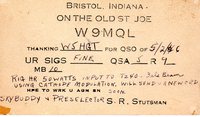 BRISTOL, INDIANA.
ON THE OLD ST JOE
W9MQL
THANKING W5HGT FOR QSO OF 5/2/36
UR SIGS FINE QSA 5 R 9
MB 20
RIG HR 50 WATTS INPUT TO T20.
USING CATHODE MODULATION, WILL SEND U A NEW CARD
HPE TO WRK U AGN EN SOON
SKYBUDDY & PRESELECTOR S-R. STUTSMAN